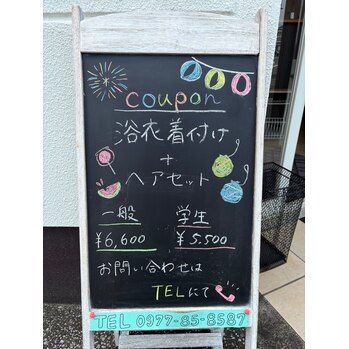 coupon
浴衣着付け
+
ヘアセット
一般
¥6,600
学生
¥5.500
お問い合わせは
TELにて
TEL 0977-85-8587